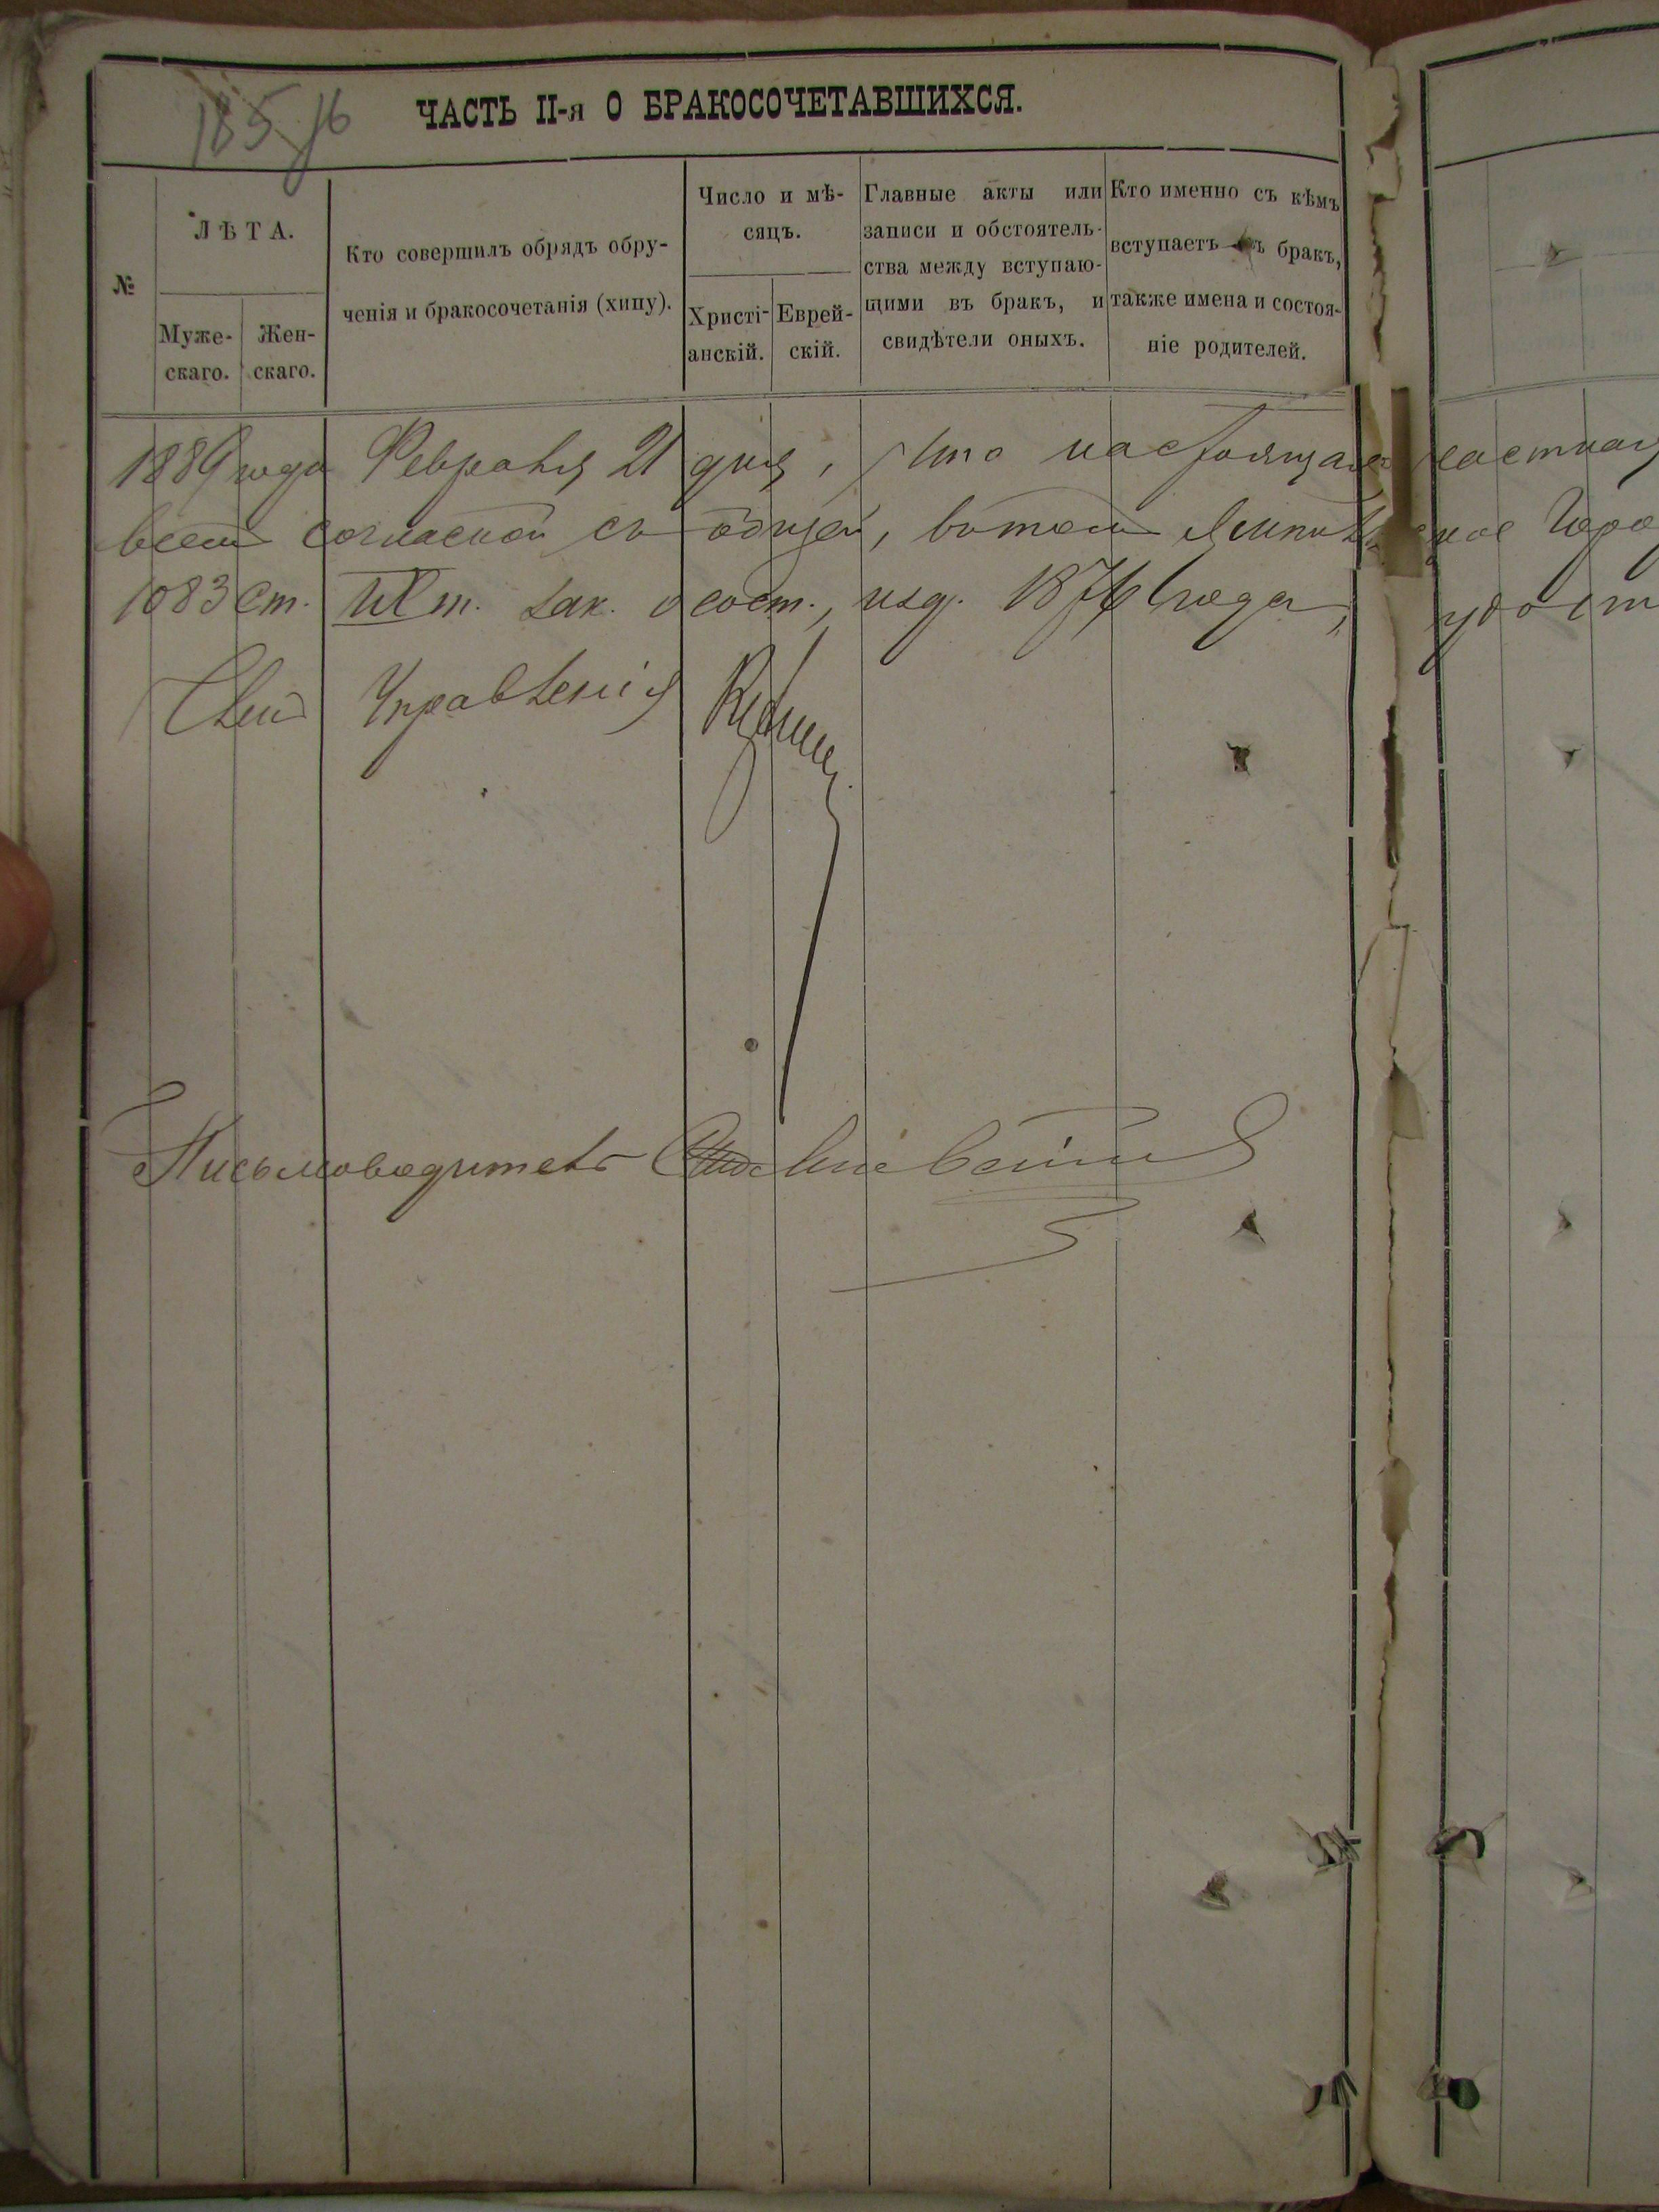 185 76
ЧАСТЬ II-я О БРАКОСОЧЕТАВШИХСЯ.
№
ЛѢТА.
Муже-
скаго.
Жен-
скаго.
Кто совершилъ обрядъ обру-
ченія и бракосочетанія (хипу).
Число и мѣ-
сяцъ.
Христі-
анскій.
Еврей-
скій.
Главные акты или
записи и обстоятель-
ства между вступаю-
щими въ бракъ, и
свидѣтели оныхъ.
Кто именно съ кѣмъ
вступаетъ въ бракъ,
также имена и состоя-
ніе родителей.
1889 года Февраля 21 дня, Что настоящая частная
всемъ согласной съ общей, въ томъ
1083 ст. IX т. Зак. о сост., изд. 1876 года, удост
Член Управленія
Письмоводитель